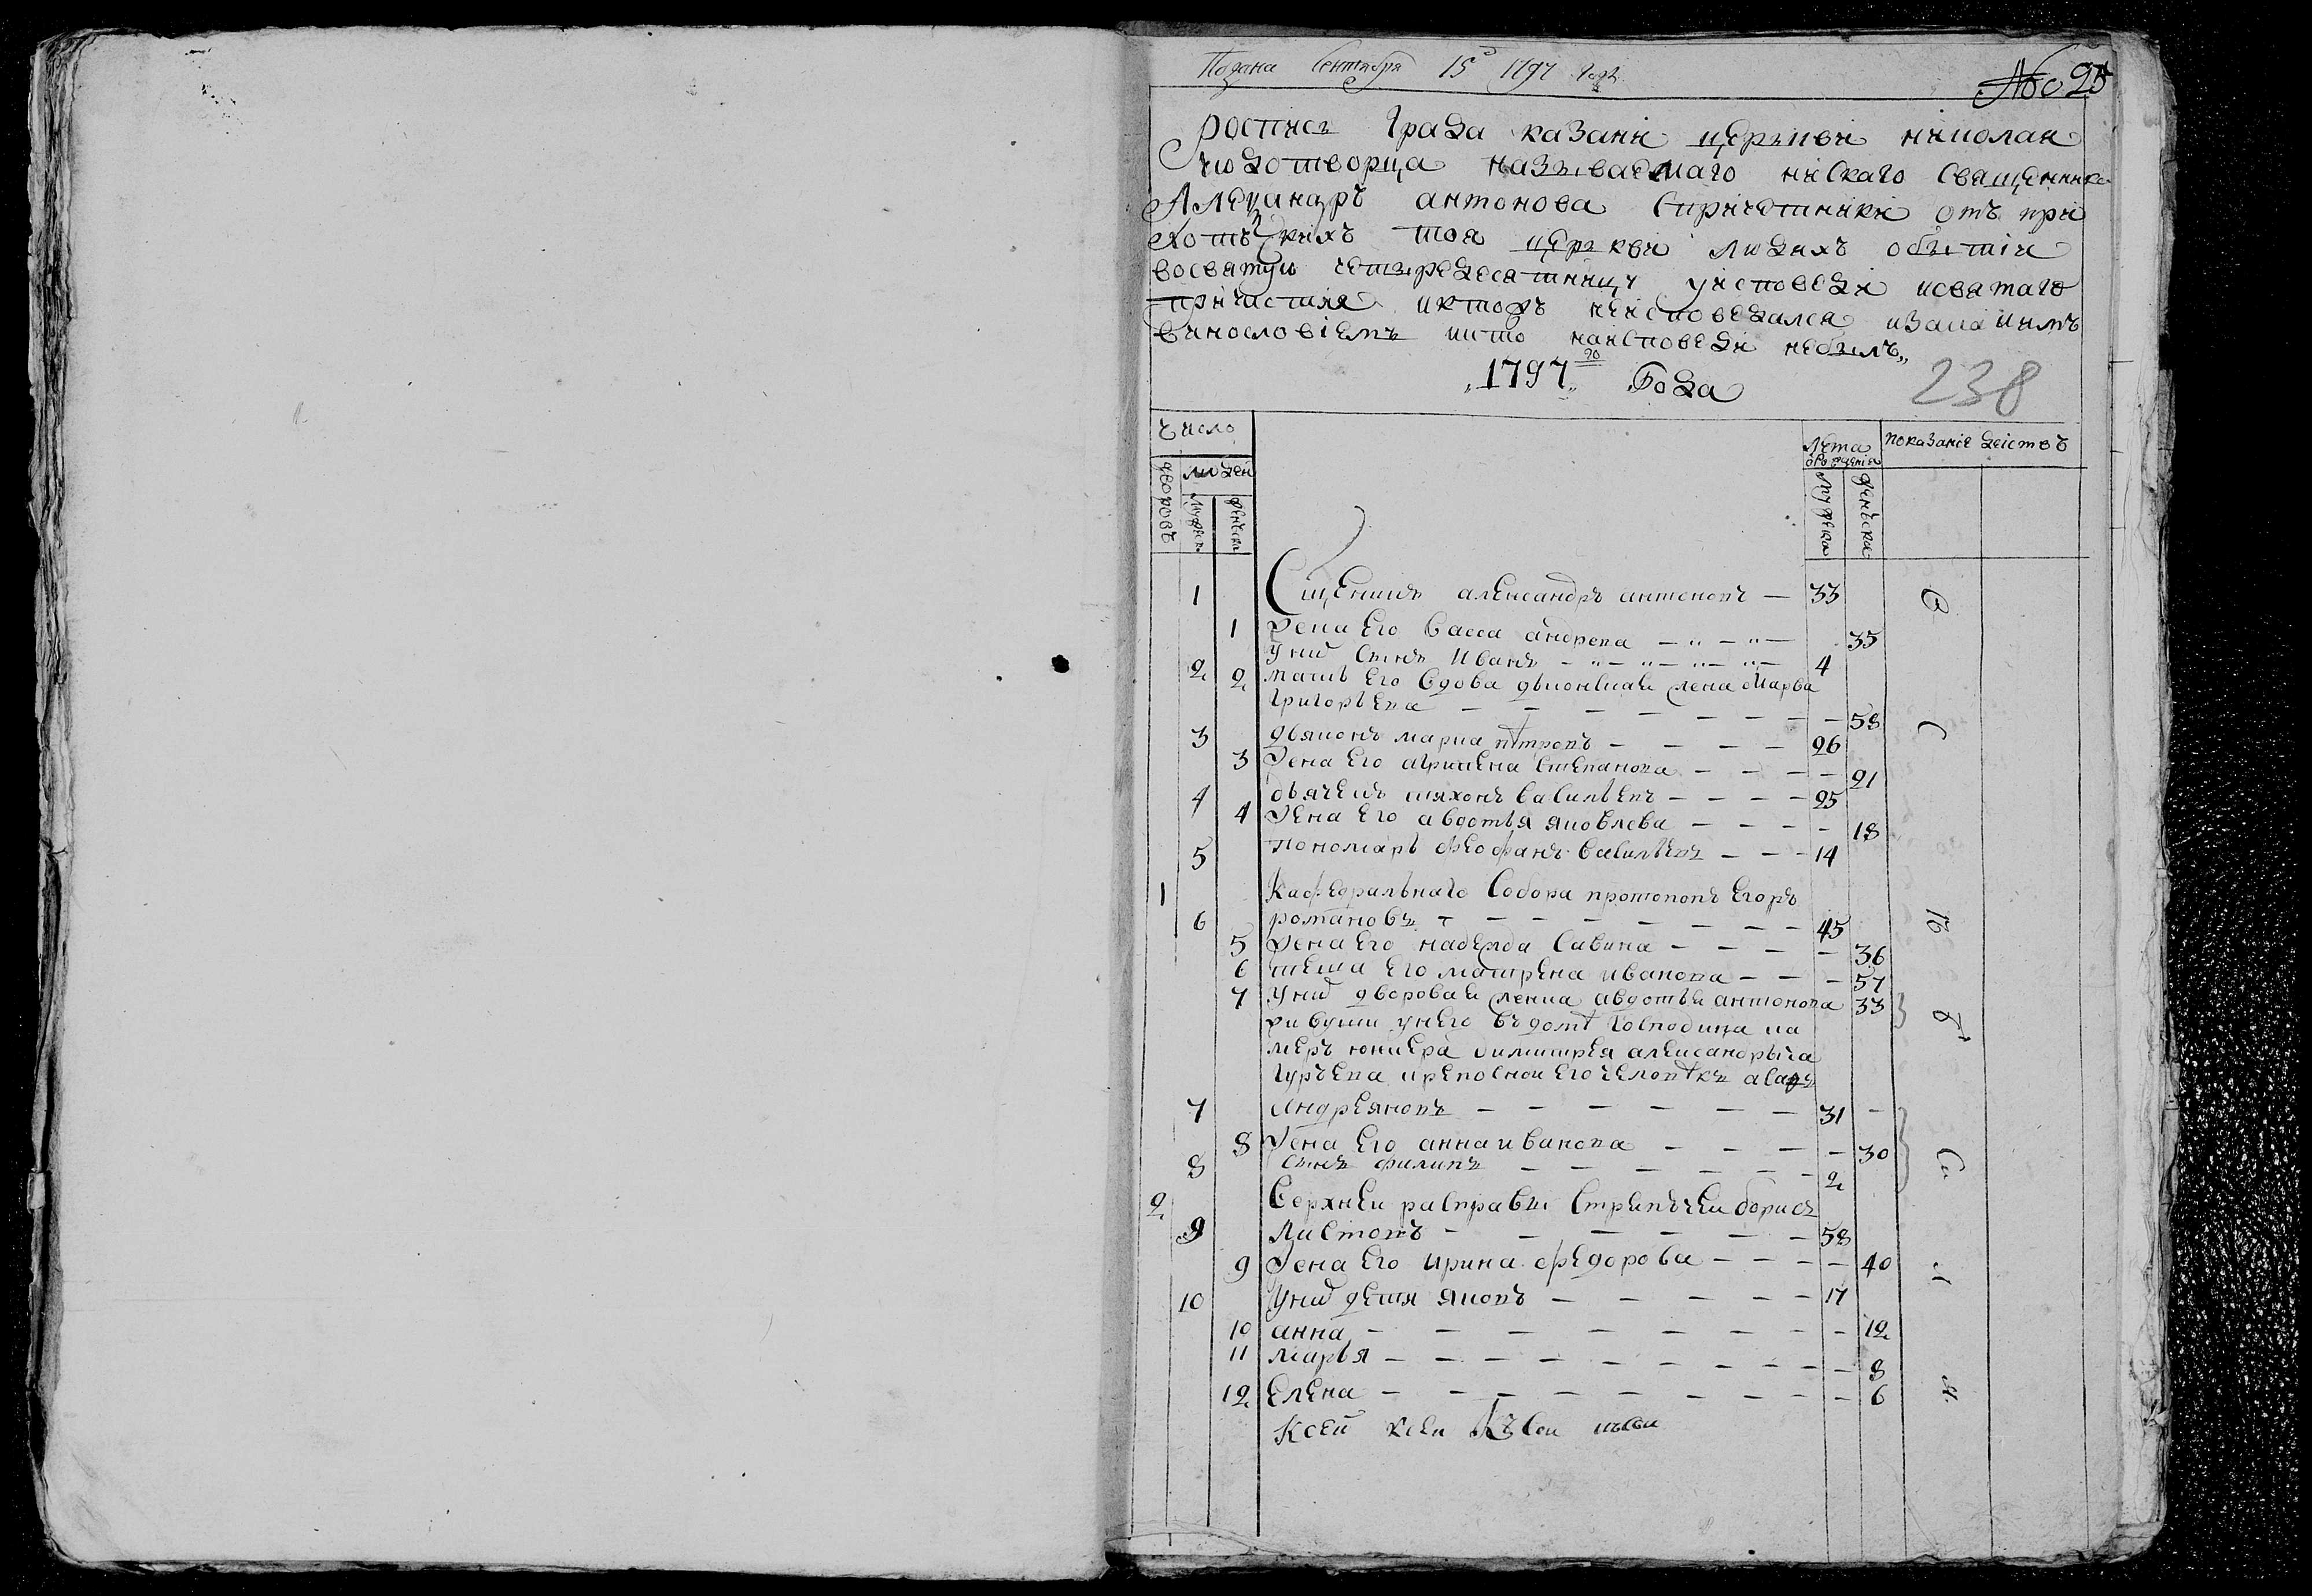 Подана Сентября 15 1797 года
№ 25
роспись града казани церькви николая
чюдотворца называемаго нискаго священника
Алеѯандръ антонова спричетники отъ при
хотъцкихъ тоя церькви людяхъ обытіи
восвятую четыредесятницу уисповеди исвятаго
причистия иктожъ неисповедался изакаимъ
винословіемъ икто наисповеди небылъ
1797 го года
238
число
лета
отрождения
показание действъ
дворовъ
людей
мужеска
женска
мужеска
женьска
1 Сщенникъ александръ антоновъ — 33
1 жена его васса андреева — 35
2 уних сынъ Иванъ — 4
2 мать его вдова дьяконская жена Марва
григорьева — 58
3 дьяконъ петровъ — 26
3 жена его агрипена степанова — 21
4 дьячекъ васильевъ — 25
4 жена его авдотья яковлева — 18
5 пономарь феофанъ васильевъ — 14
1 Кафедральнаго Собора протопопъ Егоръ
6 романовъ — 45
5 жена его надежда савина — 36
6 теща его матрена иванова — 57
7 уних дворовая женка авдотья антонова 33
живущи унего въ доме господина ка
меръ юнкера димитрея александрыча
гурьева крепосной его человекъ
7 Андреяновъ — 31
8 жена его анна иванова — 30
8 сынъ филипъ — 2
2 верхней расправы стряпъчей борисъ
9 Листовъ — 58
9 жена его ирина федорова — 40
10 уних дети яковъ — 17
10 анна — 12
11 марья — 8
12 елена — 6